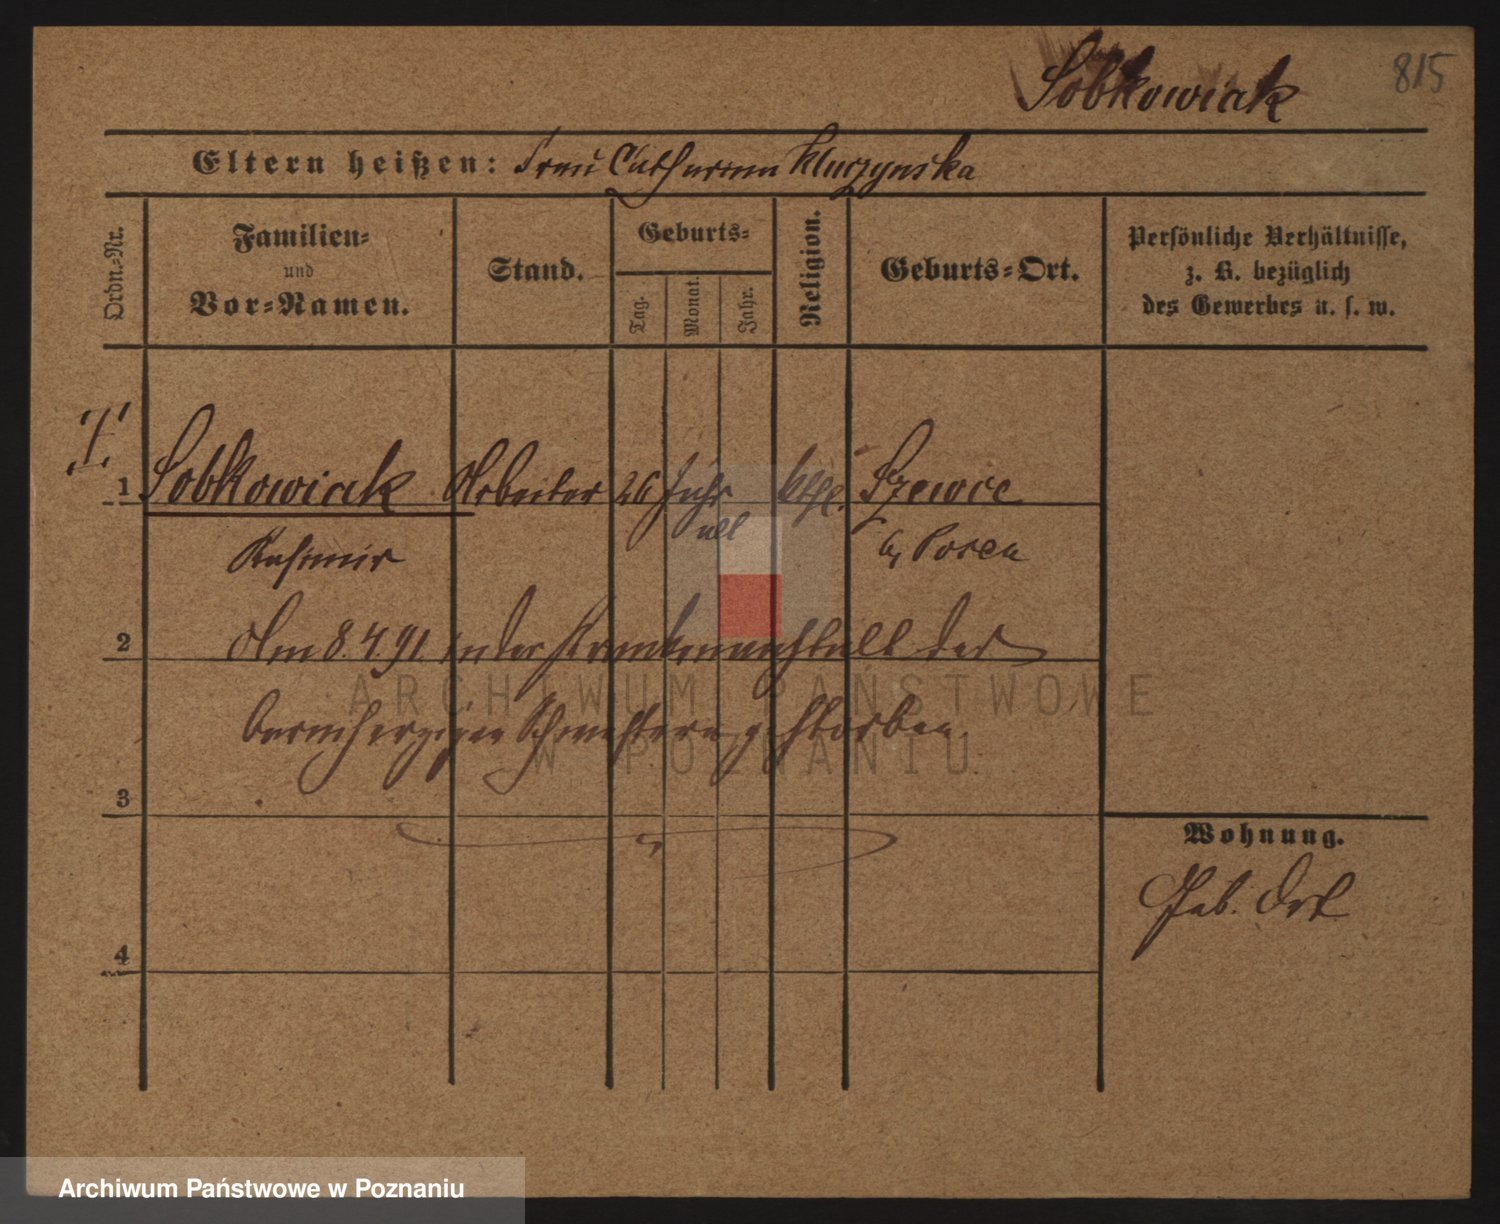 Sobkowiak
815
Eltern heißen: Frau Catharina Kluczynska
Ordn.-Nr.
Familien-
und
Vor-Namen.
Stand.
Geburts-
Tag.
Monat.
Jahr.
Religion.
Geburts-Ort.
Persönliche Verhältnisse,
z. B. bezüglich
des Gewerbes u. s. w.
1 Sobkowiak Arbeiter 26 Jahr kath. Szewce
alt
Kasimir
Posen
2 Am 8.4.91. in der Krankenanstalt der
barmherzigen Schwestern gestorben.
3
Wohnung.
Geb. Ort
4
ARCHIWUM PAŃSTWOWE
W POZNANIU
Archiwum Państwowe w Poznaniu